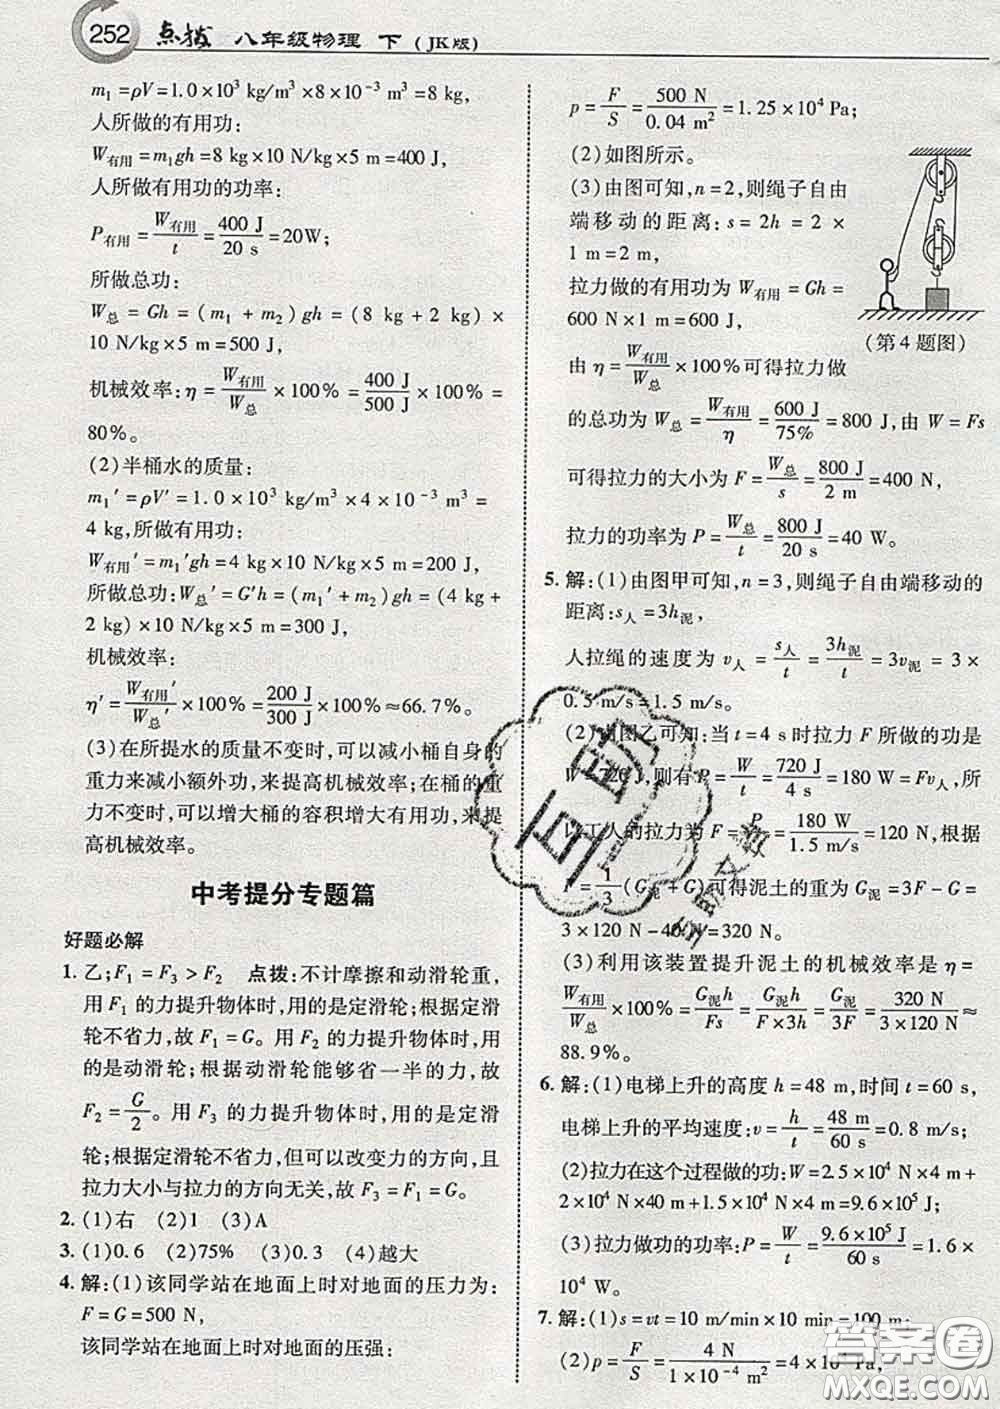 252 点拨 八年级物理 下 (JK版)
m₁=ρV=1.0×10³ kg/m³×8×10⁻³ m³=8 kg,
人所做的有用功:
W有用=m₁gh=8 kg×10 N/kg×5 m=400 J,
人所做有用功的功率:
P有用=W有用/t=400 J/20 s=20W;
所做总功:
W总=Gh=(m₁+m₂)gh=(8 kg+2 kg)×
10 N/kg×5 m=500 J,
机械效率:η=W有用/W总×100%=400 J/500 J×100%=
80%。
(2)半桶水的质量:
m₁′=ρV′=1.0×10³ kg/m³×4×10⁻³ m³=
4 kg,所做有用功:
W有用′=m₁′gh=4 kg×10 N/kg×5 m=200 J,
所做总功:W总′=G′h=(m₁′+m₂)gh=(4 kg+
2 kg)×10 N/kg×5 m=300 J,
机械效率:
η′=W有用′/W总′×100%=200 J/300 J×100%≈66.7%。
(3)在所提水的质量不变时,可以减小桶自身的
重力来减小额外功,来提高机械效率;在桶的重
力不变时,可以增大桶的容积增大有用功,来提
高机械效率。
中考提分专题篇
好题必解
1. 乙;F₁=F₃>F₂ 点拨:不计摩擦和动滑轮重,
用F₁的力提升物体时,用的是定滑轮;根据定滑
轮不省力,故F₁=G。用F₂的力提升物体时,用
的是动滑轮;根据动滑轮能够省一半的力,故
F₂=G/2。用F₃的力提升物体时,用的是定滑
轮;根据定滑轮不省力,但可以改变力的方向,且
拉力大小与拉力的方向无关,故F₃=F₁=G。
2. (1)右 (2)1 (3)A
3. (1)0.6 (2)75% (3)0.3 (4)越大
4. 解:(1)该同学站在地面上时对地面的压力为:
F=G=500 N,
该同学站在地面上时对地面的压强:
p=F/S=500 N/0.04 m²=1.25×10⁴ Pa;
(2)如图所示。
(3)由图可知,n=2,则绳子自由
端移动的距离:s=2h=2×
1 m=2 m;
拉力做的有用功为W有用=Gh=
600 N×1 m=600 J,
(第4题图)
由η=W有用/W总×100%可得拉力做
的总功为W总=W有用/η=600 J/75%=800 J,由W=Fs
可得拉力的大小为F=W总/s=800 J/2 m=400 N,
拉力的功率为P=W总/t=800 J/20 s=40 W。
5. 解:(1)由图甲可知,n=3,则绳子自由端移动的
距离:s人=3h泥,
人拉绳的速度为v人=s人/t=3h泥/t=3v泥=3×
0.5 m/s=1.5 m/s。
(2)由图乙可知:当t=4 s时拉力F所做的功是
W=720 J,则有P=W/t=720 J/4 s=180 W=Fv人,所
以工人的拉力为F=P/v人=180 W/1.5 m/s=120 N,根据
F=1/3(G泥+G)可得泥土的重为G泥=3F-G=
3×120 N-40 N=320 N。
(3)利用该装置提升泥土的机械效率是η=
W有用/W总×100%=G泥h/Fs=G泥h/F×3h=G泥/3F=320 N/3×120 N≈
88.9%。
6. 解:(1)电梯上升的高度h=48 m,时间t=60 s,
电梯上升的平均速度:v=h/t=48 m/60 s=0.8 m/s;
(2)拉力在这个过程做的功:W=2.5×10⁴ N×4 m+
2×10⁴ N×40 m+1.5×10⁴ N×4 m=9.6×10⁵ J;
(3)拉力做功的功率:P=W/t=9.6×10⁵ J/60 s=1.6×
10⁴ W。
7. 解:(1)s=vt=10 m/min×10 min=100 m;
(2)p=F/S=4 N/1×10⁻⁴ m²=4×10⁴ Pa,
互助
互助文档
答案圈
MXQE.COM